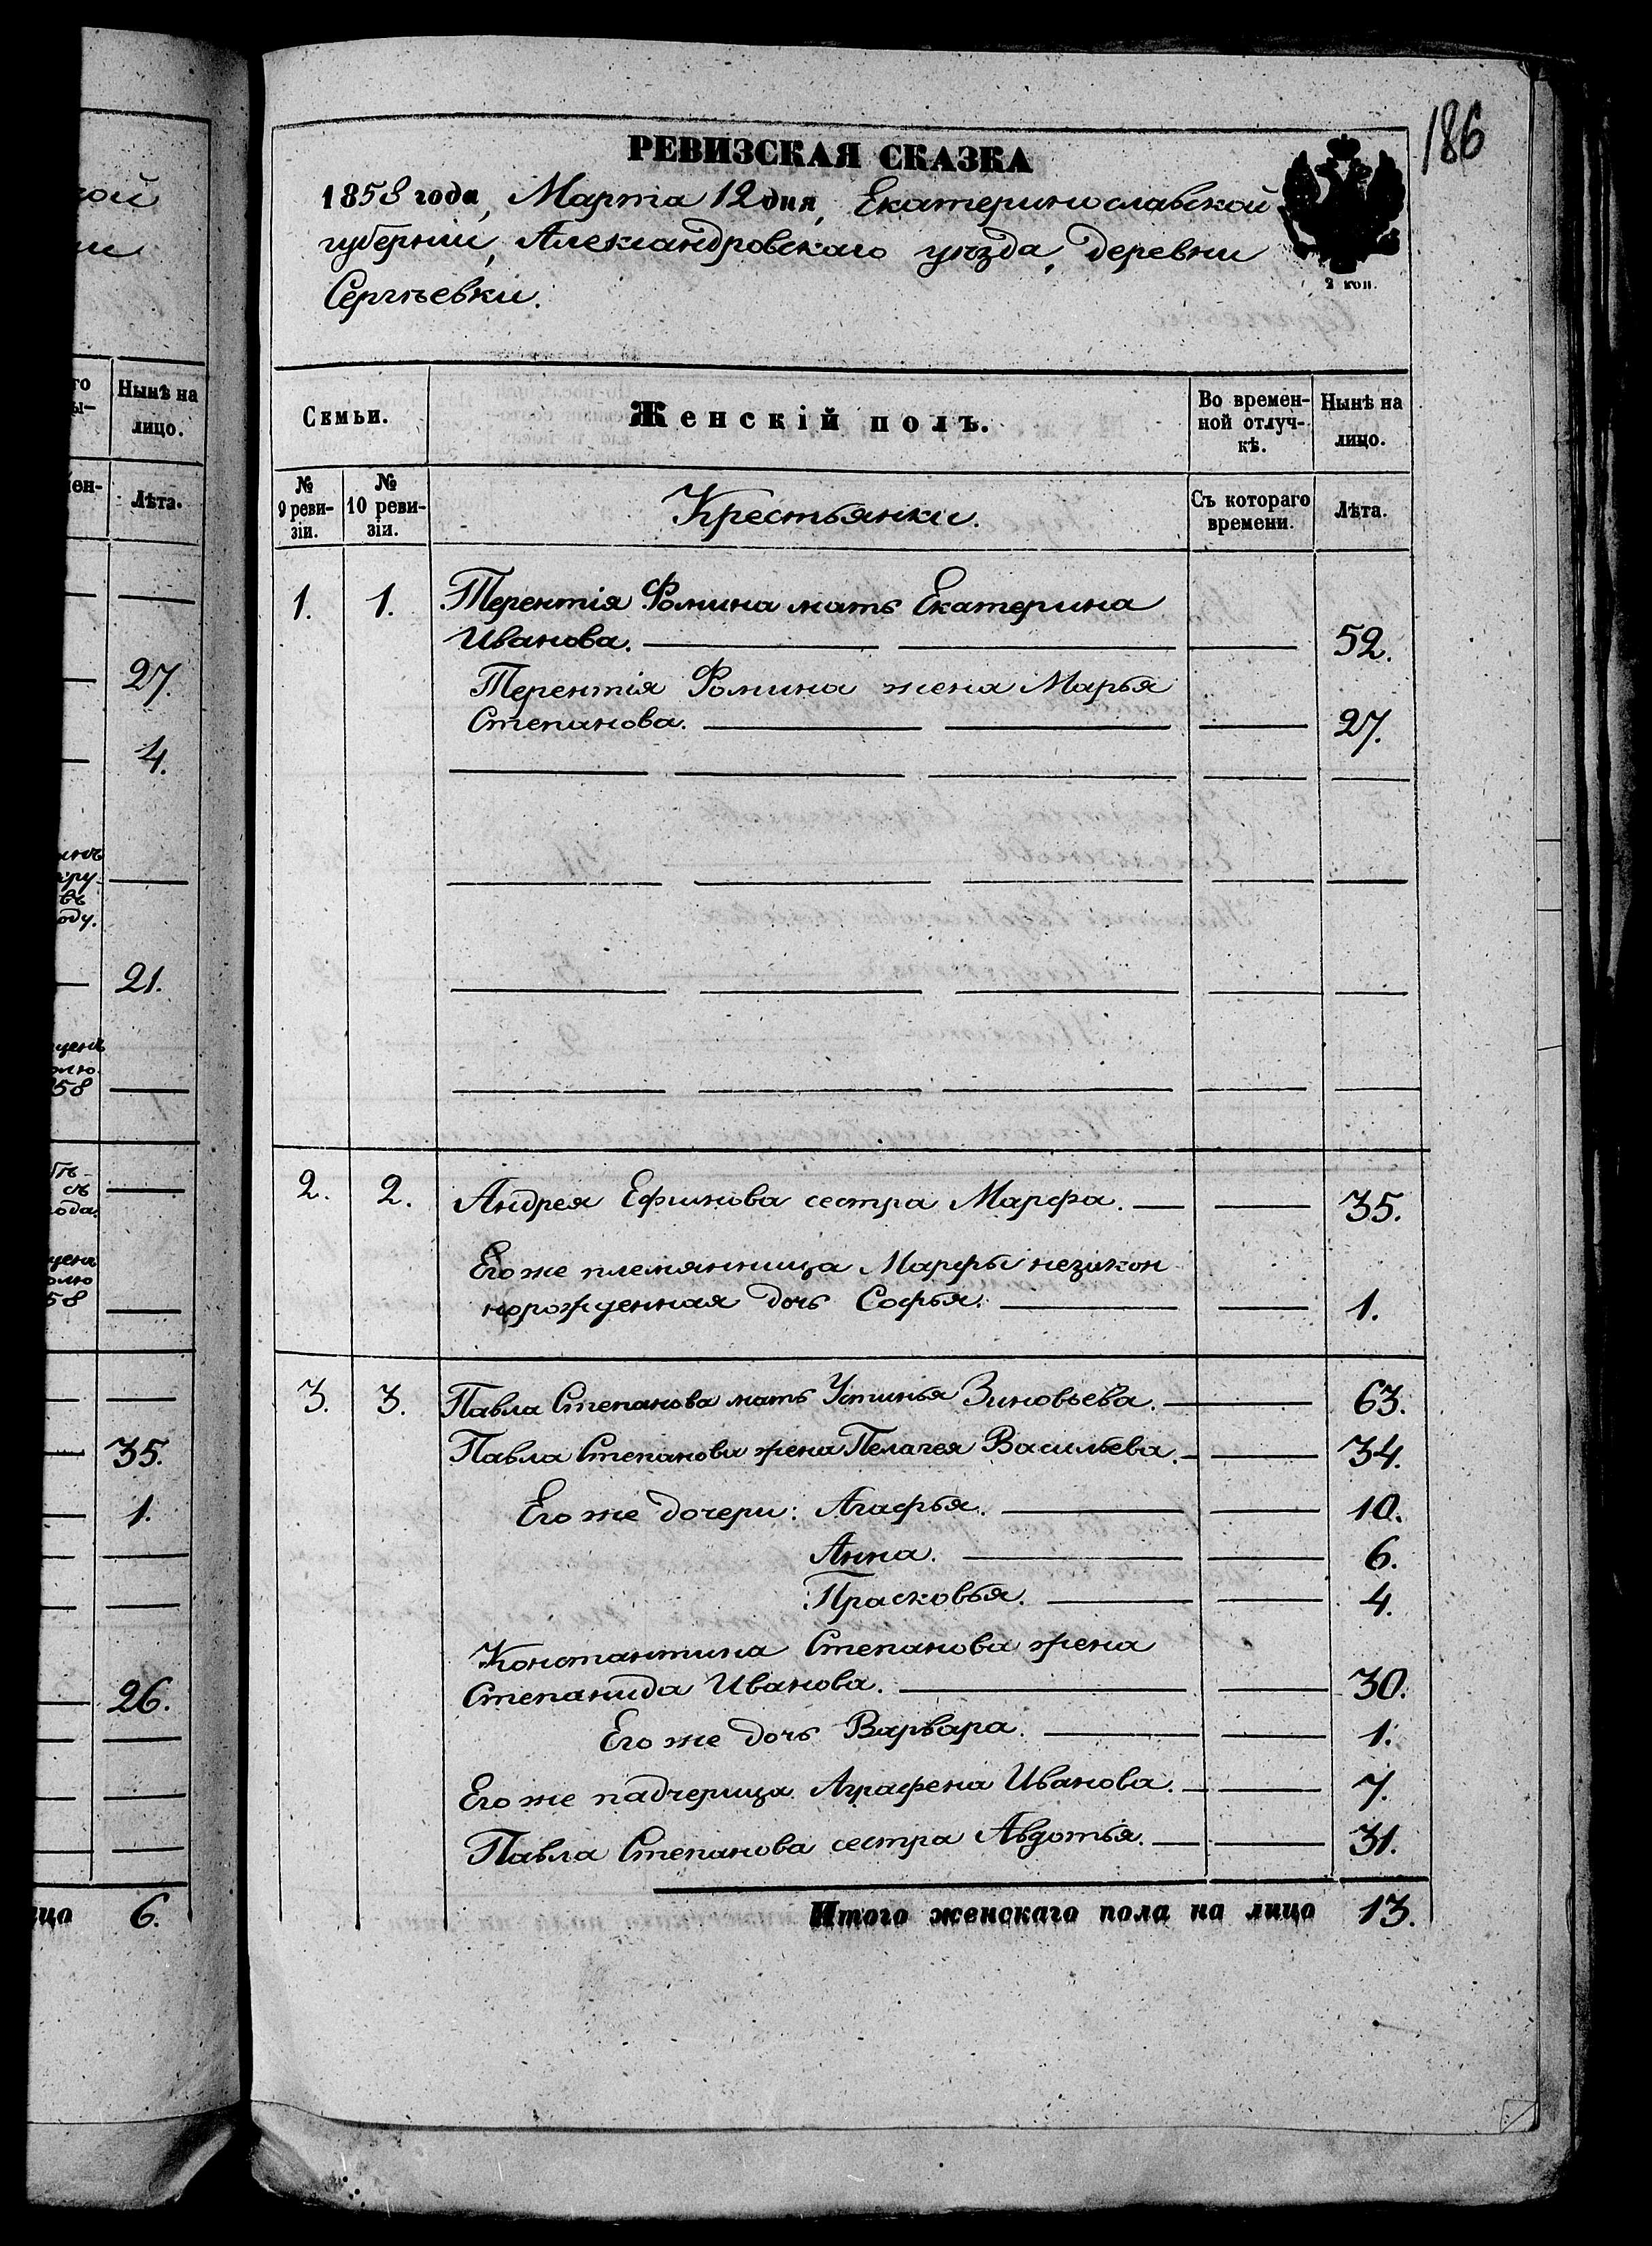 186
РЕВИЗСКАЯ СКАЗКА
1858 года, Марта 12 дня, Екатеринославской
губерніи, Александровскаго уѣзда, деревни
Сергѣевки.
2 коп.
Семьи.
Женскій полъ.
Во времен-
ной отлуч-
кѣ.
Нынѣ на
лицо.
№
9 реви-
зіи.
№
10 реви-
зіи.
Крестьянки.
Съ котораго
времени.
Лѣта.
1. 1. Терентія Фомина мать Екатерина
Иванова. 52.
Терентія Фомина жена Марья
Степанова. 27.
2. 2. Андрея Ефимова сестра Марфа. 35.
Его же племянница Марфы незакон
норожденная дочь Софья. 1.
3. 3. Павла Степанова мать Устинья Зиновьева. 63.
Павла Степанова жена Пелагея Васильева. 34.
Его же дочери: Агафья. 10.
Анна. 6.
Прасковья. 4.
Константина Степанова жена
Степанида Иванова. 30.
Его же дочь Варвара. 1.
Его же падчерица Аграфена Иванова. 7.
Павла Степанова сестра Авдотья. 31.
Итого женскаго пола на лицо 13.
Нынѣ на
лицо.
Лѣта.
27.
4.
21.
58
58
35.
1.
26.
6.